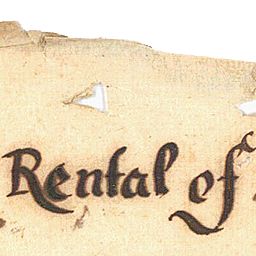 Rental of